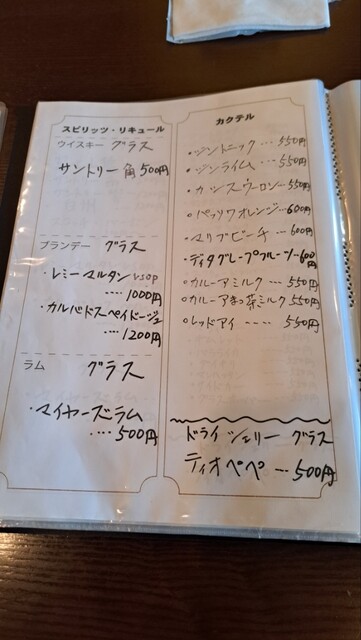 スピリッツ・リキュール
ウイスキー グラス
サントリー角 500円
ブランデー グラス
・レミーマルタン VSOP
・・・・ 1000円
・カルバドスペイドージュ
・・・ 1200円
ラム グラス
・マイヤーズラム
・・・・ 500円
カクテル
・ジントニック ・・・ 550円
・ジンライム ・・・ 550円
・カシスウーロン ・・ 550円
・パッソアオレンジ ・・・ 600円
・マリブピーチ ・・・ 600円
・ディタグレープフルーツ ・・ 600円
・カルーアミルク ・・・ 550円
・カルーアまっ茶ミルク 550円
・レッドアイ ・・・・ 550円
ドライシェリー グラス
ティオペペ ・・・ 500円